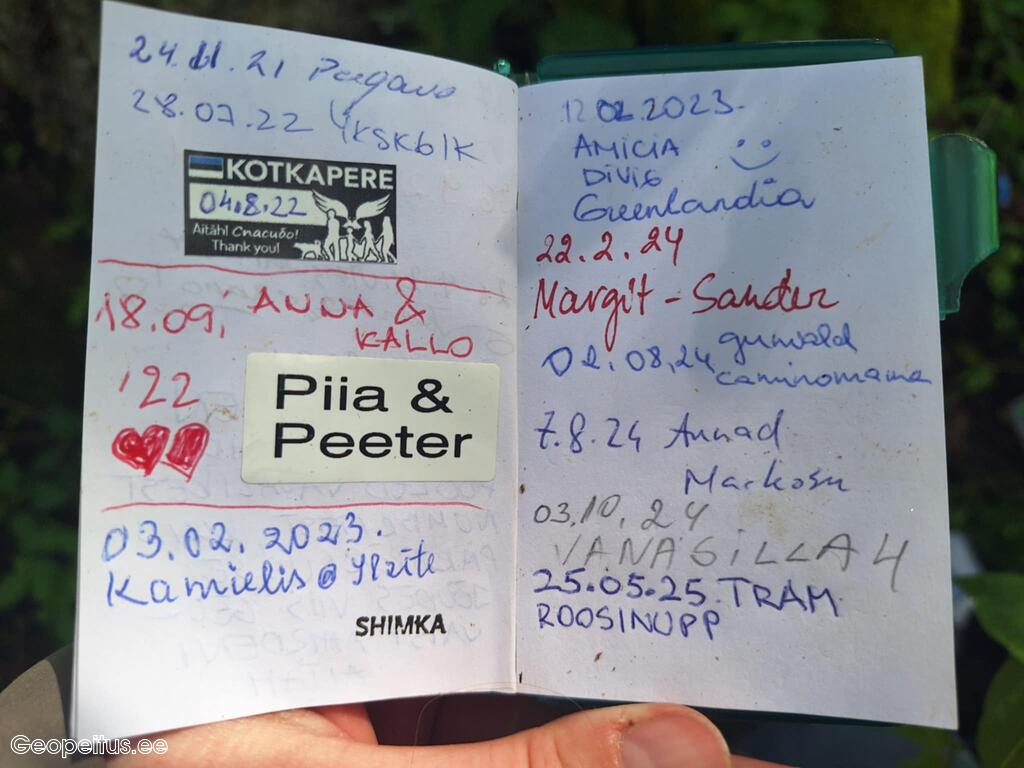 24.11.21 Pagano
28.07.22 Ykskõik
KOTKAPERE
04.8.22
Aitäh! Спасибо!
Thank you!
18.09. ANNA &
KALLO
'22
Piia &
Peeter
03.02. 2023.
Kamielis @
SHIMKA
12.02.2023.
AMICIA
DIVI6
Greenlandia
22.2.24
Margit - Sander
02.08.24 grünvald
caminomama
7.8.24 Annad
Markosii
03.10.24
VANASILLA 4
25.05.25. TRAM
ROOSINUPP
Geopeitus.ee